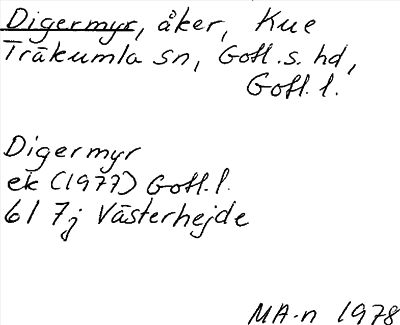 Digermyr, åker, Kue
Träkumla sn, Gotl. s. hd,
Gotl. l.
Digermyr
ek (1977) Gotl. l.
6I 7j Västerhejde
MA-n 1978